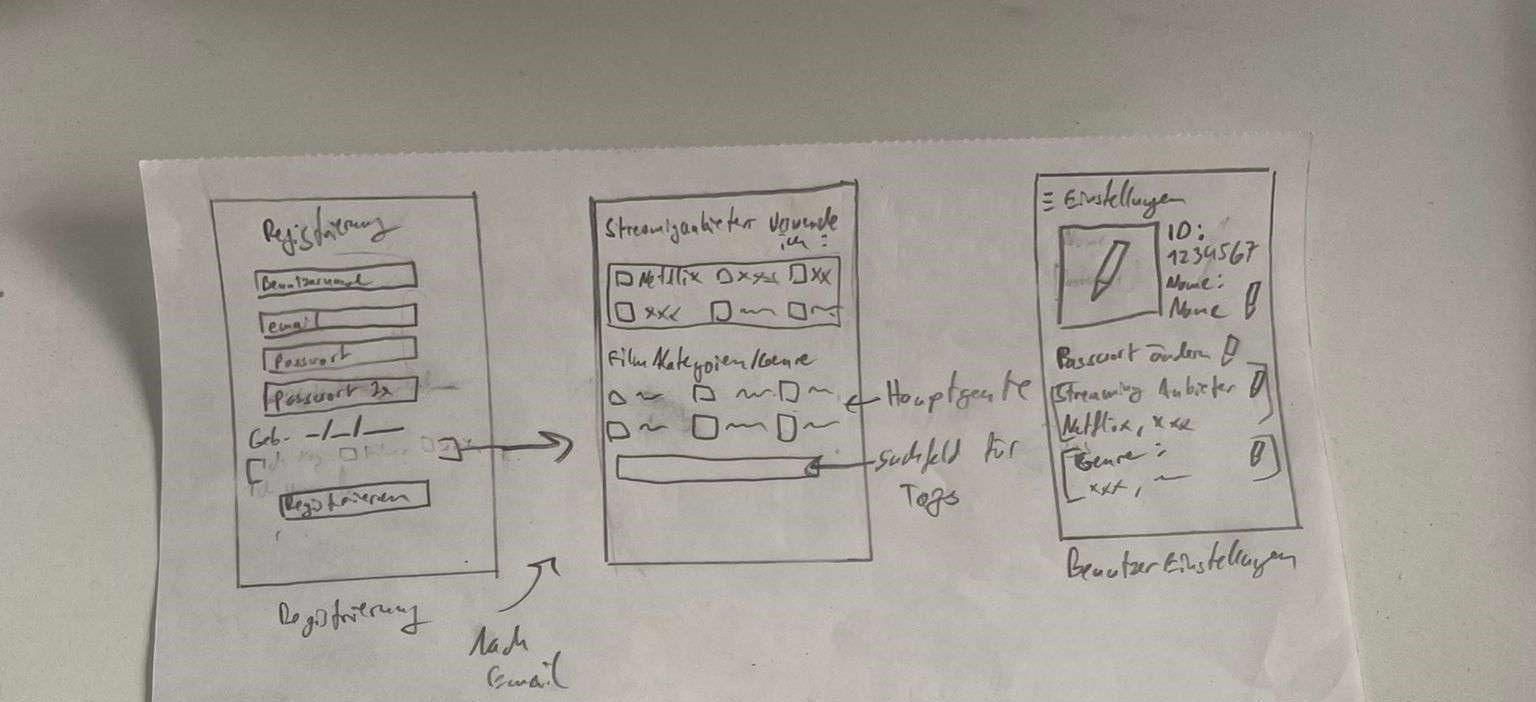 Registrierung
Benutzername
email
Passwort
Passwort 2x
Geb. -/-/-
Registrieren
Registrierung
Nach
Email
Streaminganbieter Verwende
ich :
Netflix xxx xx
xxx
Film/Kategorien/Genre
Hauptgenre
Suchfeld für
Tags
Einstellungen
ID:
1234567
Name:
Name
Passwort ändern
Streaming Anbieter
Netflix, xxx
Genre :
xxx,
Benutzer Einstellungen